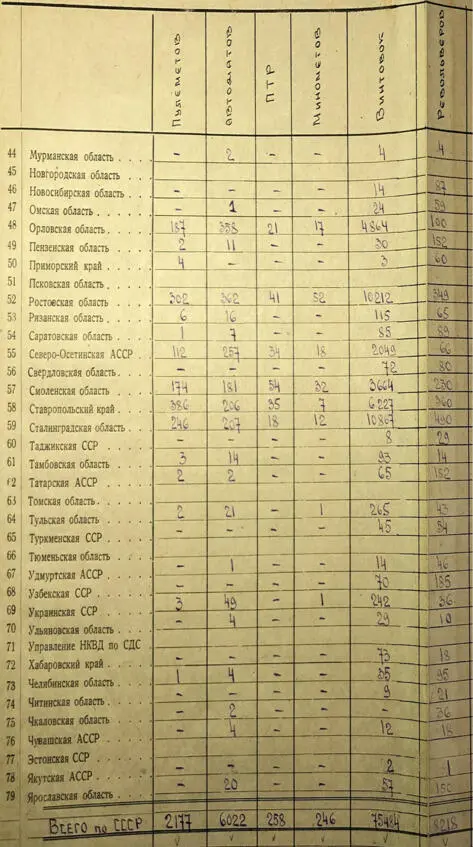 Пулеметов автоматов ПТР Минометов Винтовок Револьверов
44 Мурманская область . . . . – 2 – – 4 4
45 Новгородская область . . .
46 Новосибирская область . . . – – – – 14 87
47 Омская область . . . . . . – 1 – – 24 59
48 Орловская область . . . . . 187 358 21 17 4864 100
49 Пензенская область . . . . 2 11 – – 30 152
50 Приморский край . . . . . 4 – – – 3 60
51 Псковская область . . . . .
52 Ростовская область . . . . 302 362 41 52 10212 349
53 Рязанская область . . . . . 6 16 – – 115 65
54 Саратовская область . . . . 1 7 – – 85 89
55 Северо-Осетинская АССР . . 112 257 34 18 2049 66
56 Свердловская область . . . – – – – 72 80
57 Смоленская область . . . . 174 181 54 32 3664 230
58 Ставропольский край . . . . 386 206 35 7 6227 360
59 Сталинградская область . . . 246 207 18 12 10867 490
60 Таджикская ССР . . . . . – – – – 8 29
61 Тамбовская область . . . . 3 14 – – 93 14
62 Татарская АССР . . . . . 2 2 – – 65 152
63 Томская область . . . . .
64 Тульская область . . . . . 2 21 – 1 265 43
65 Туркменская ССР . . . . . – – – – 45 54
66 Тюменьская область . . . .
67 Удмуртская АССР . . . . . – 1 – – 14 46
68 Узбекская ССР . . . . . . – – – – 70 185
69 Украинская ССР . . . . . 3 49 – 1 242 36
70 Ульяновская область . . . . – 4 – – 29 10
71 Управление НКВД по СДС
72 Хабаровский край . . . . . – – – – 73 18
73 Челябинская область . . . . 1 4 – – 35 95
74 Читинская область . . . . . – – – – 9 21
75 Чкаловская область . . . . – 2 – – – 36
76 Чувашская АССР . . . . . – 4 – – 12 18
77 Эстонская ССР . . . . . .
78 Якутская АССР . . . . . . – – – – 2 1
79 Ярославская область . . . . – 20 – – 57 150
Всего по СССР 2177 6022 258 246 75484 8218